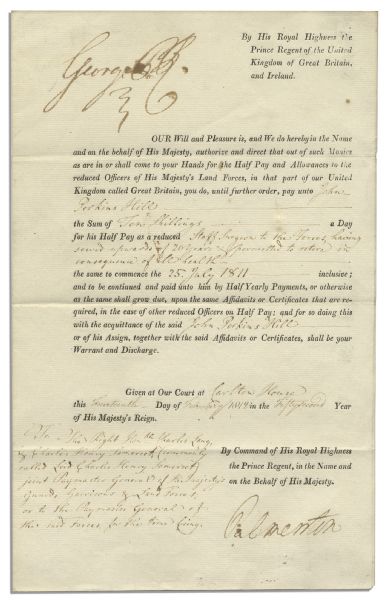 By His Royal Highness the
Prince Regent of the United
Kingdom of Great Britain,
and Ireland.
George P R
OUR Will and Pleasure is, and We do hereby in the Name
and on the behalf of His Majesty, authorize and direct that out of such Monies
as are in or shall come to your Hands for the Half Pay and Allowances to the
reduced Officers of His Majesty's Land Forces, in that part of our
United Kingdom called Great Britain, you do, until further order, pay unto John
Perkins Hill
the Sum of Ten Shillings a Day
for his Half Pay as a reduced Staff Surgeon to the Forces, having
served upwards of 20 Years & permitted to retire in
consequence of ill health
the same to commence the 25 July 1811 inclusive;
and to be continued and paid unto him by Half Yearly Payments, or otherwise
as the same shall grow due, upon the same Affidavits or Certificates that are re-
quired, in the case of other reduced Officers on Half Pay; and for so doing this
with the acquittance of the said John Perkins Hill
or of his Assign, together with the said Affidavits or Certificates, shall be your
Warrant and Discharge.
Given at Our Court at Carlton House
this Day of in the Year
of His Majesty's Reign.
To The Right Honble Charles Long,
& Charles Henry Somerset (commonly
called Lord Charles Henry Somerset)
joint Paymaster General of His Majesty's
Guards, Garrisons & Land Forces,
or to the Paymaster General of
the said Forces, for the time being.
By Command of His Royal Highness
the Prince Regent, in the Name and
on the Behalf of His Majesty.
Palmerston